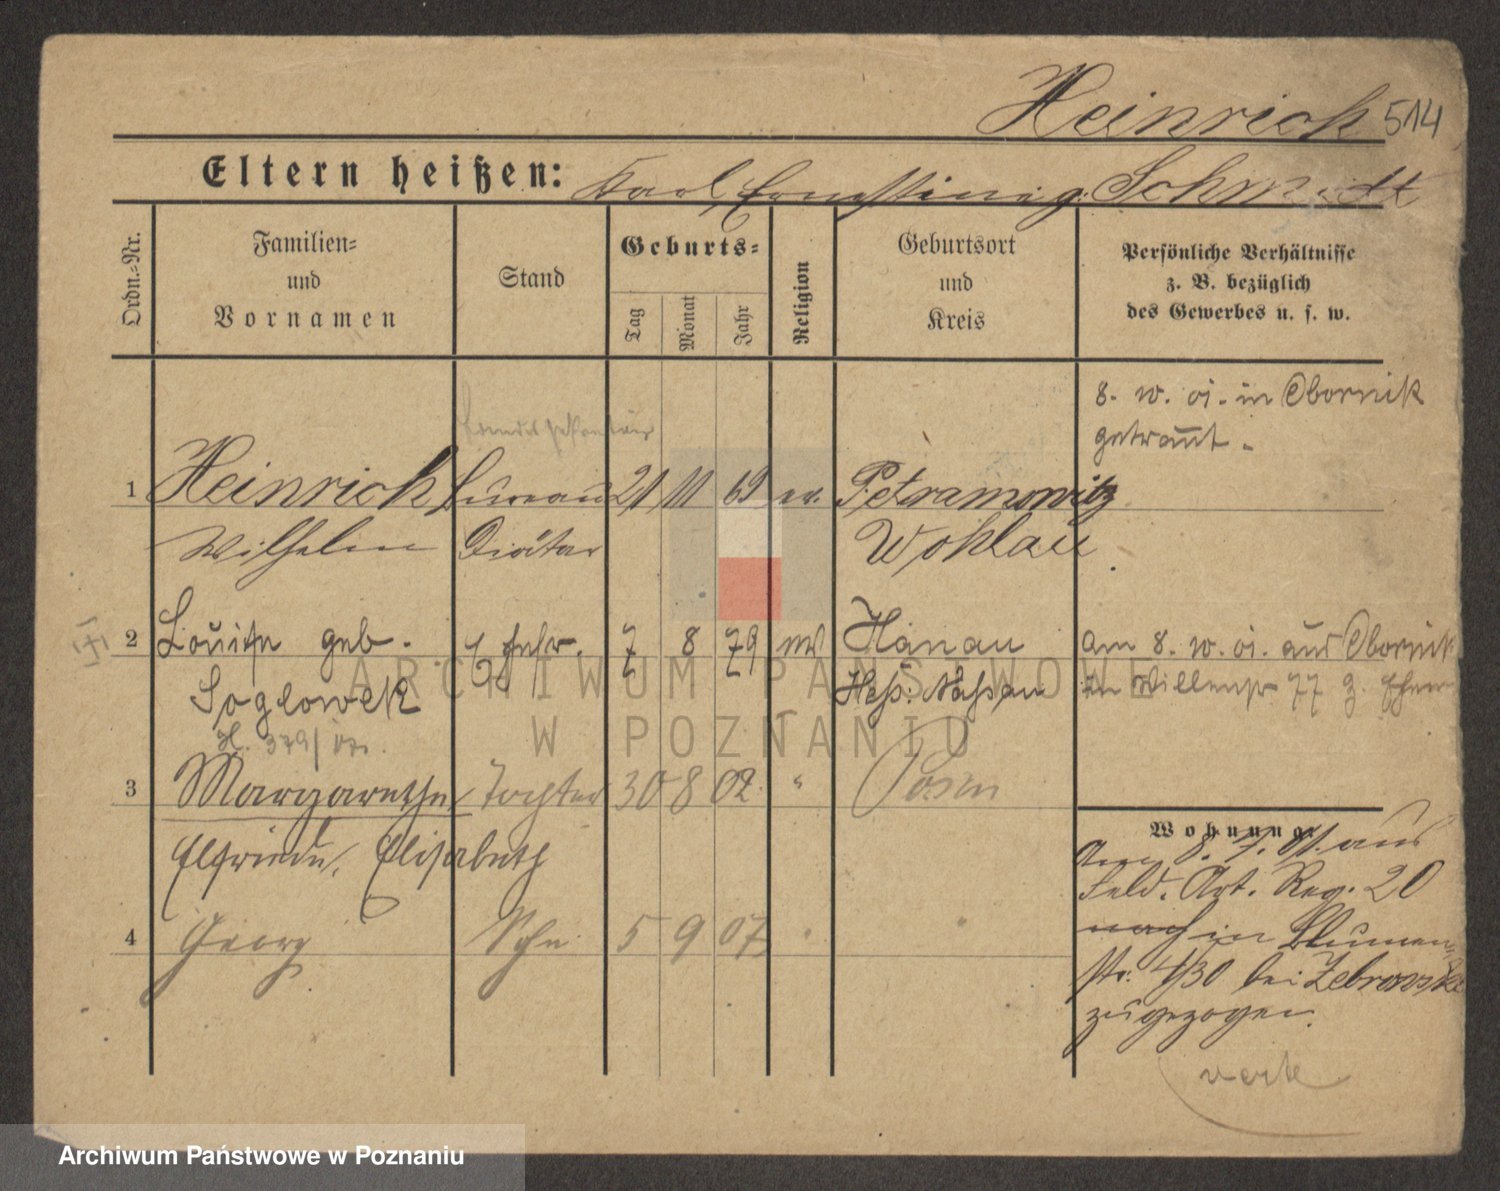 Heinrich 514
Eltern heißen: Karl, Ernestine g. Schmidt
Ordn.-Nr.
Familien-
und
Vornamen
Stand
Geburts-
Tag
Monat
Jahr
Religion
Geburtsort
und
Kreis
Persönliche Verhältnisse
z. B. bezüglich
des Gewerbes u. s. w.
8. 10. 01. in Obornik
getraut.
1 Heinrich, Bureau 21 11 69 ev. Petranowitz
Wilhelm Diätar Wohlau
2 Louise geb. Ehefr. 7 8 79 Hanau Am 8. 10. 01. aus Obornik
Soglowek Hess. Nassau in
H. 379/07.
3 Margarethe, Tochter 30 8 02 " Posen
Elfriede, Elisabeth
Wohnung
Am 8. 7. 01. aus
Feld. Art. Reg. 20
nach in Blumen-
str. 4/30 bei Zebrowski
zugezogen.
4 Georg Sohn 5 9 07 " "
ARCHIWUM PAŃSTWOWE
W POZNANIU
Archiwum Państwowe w Poznaniu